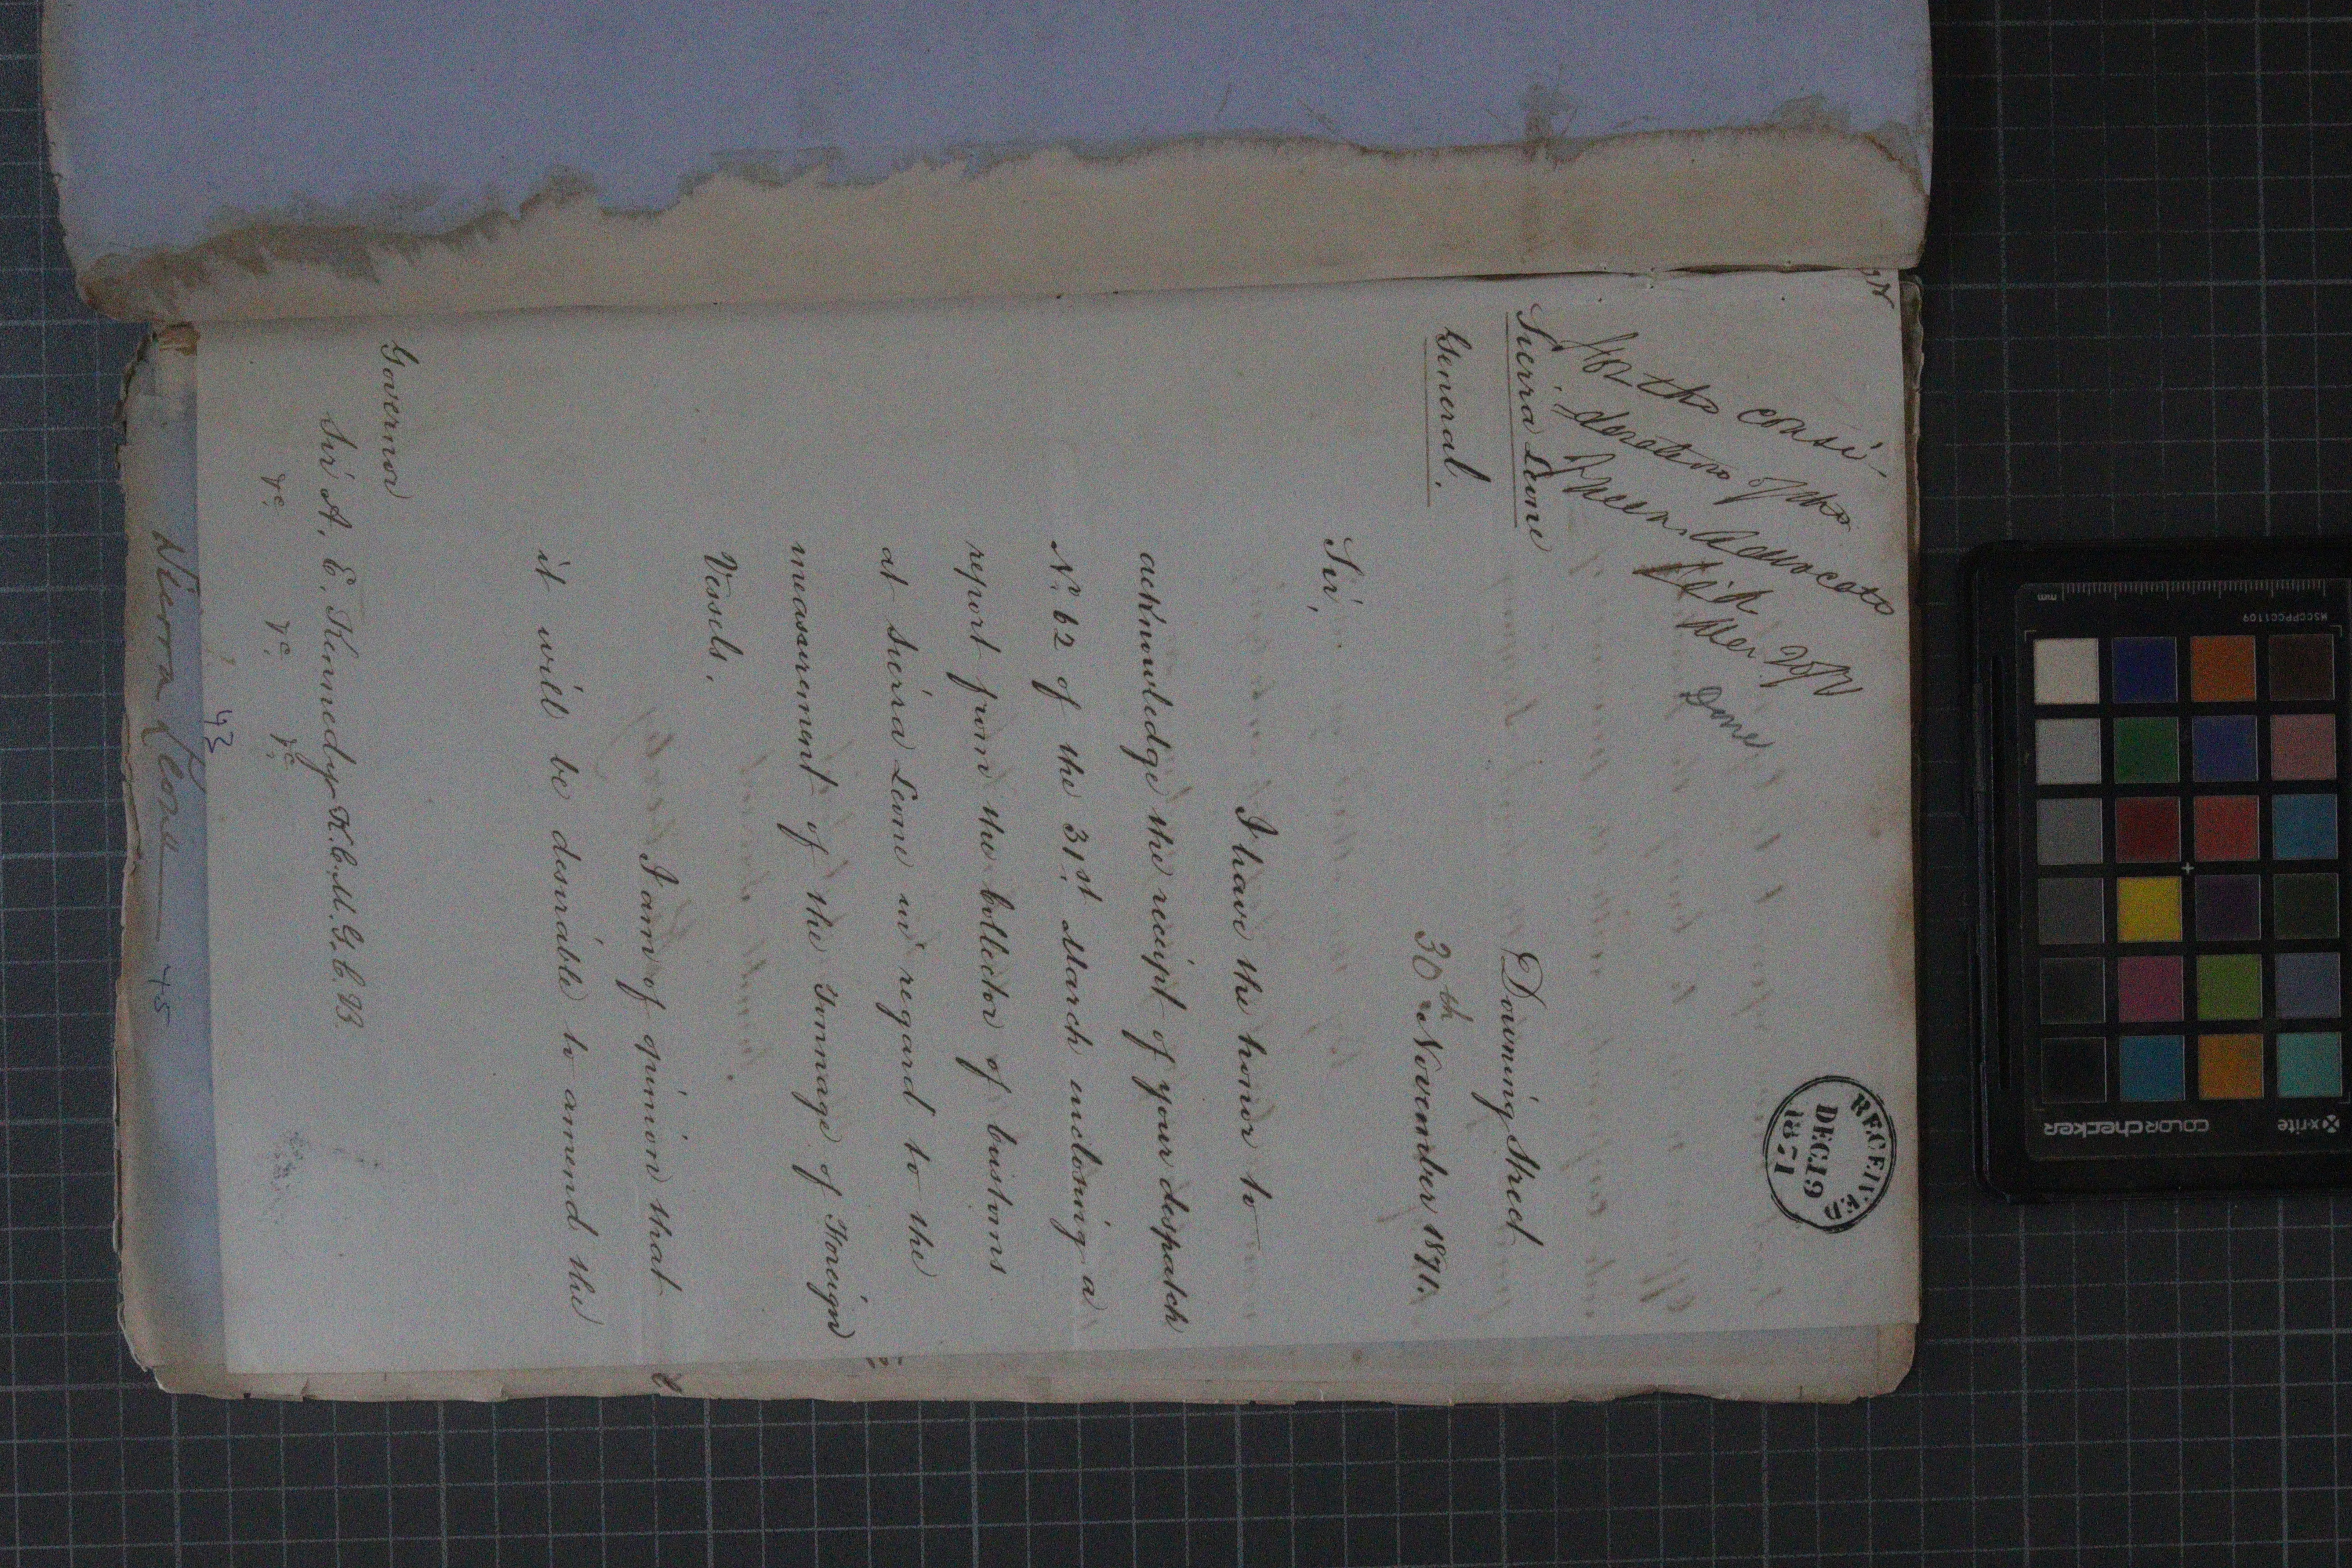 For the consi-
deration of the
Queen's Advocate
Dec 20/71
Done
RECEIVED
DEC 19
1871
Sierra Leone
General.
Downing Street
30th November 1871.
Sir,
I have the honor to
acknowledge the receipt of your despatch
No. 62 of the 31st March enclosing a
report from the Collector of Customs
at Sierra Leone in regard to the
measurement of the Tonnage of Foreign
Vessels.
I am of opinion that
it will be desirable to amend the
Governor
Sir A. E. Kennedy K.C.M.G. C.B.
&c. &c. &c.
43
Sierra Leone
45
x-rite
colorchecker
MSCCPPCC1109
mm